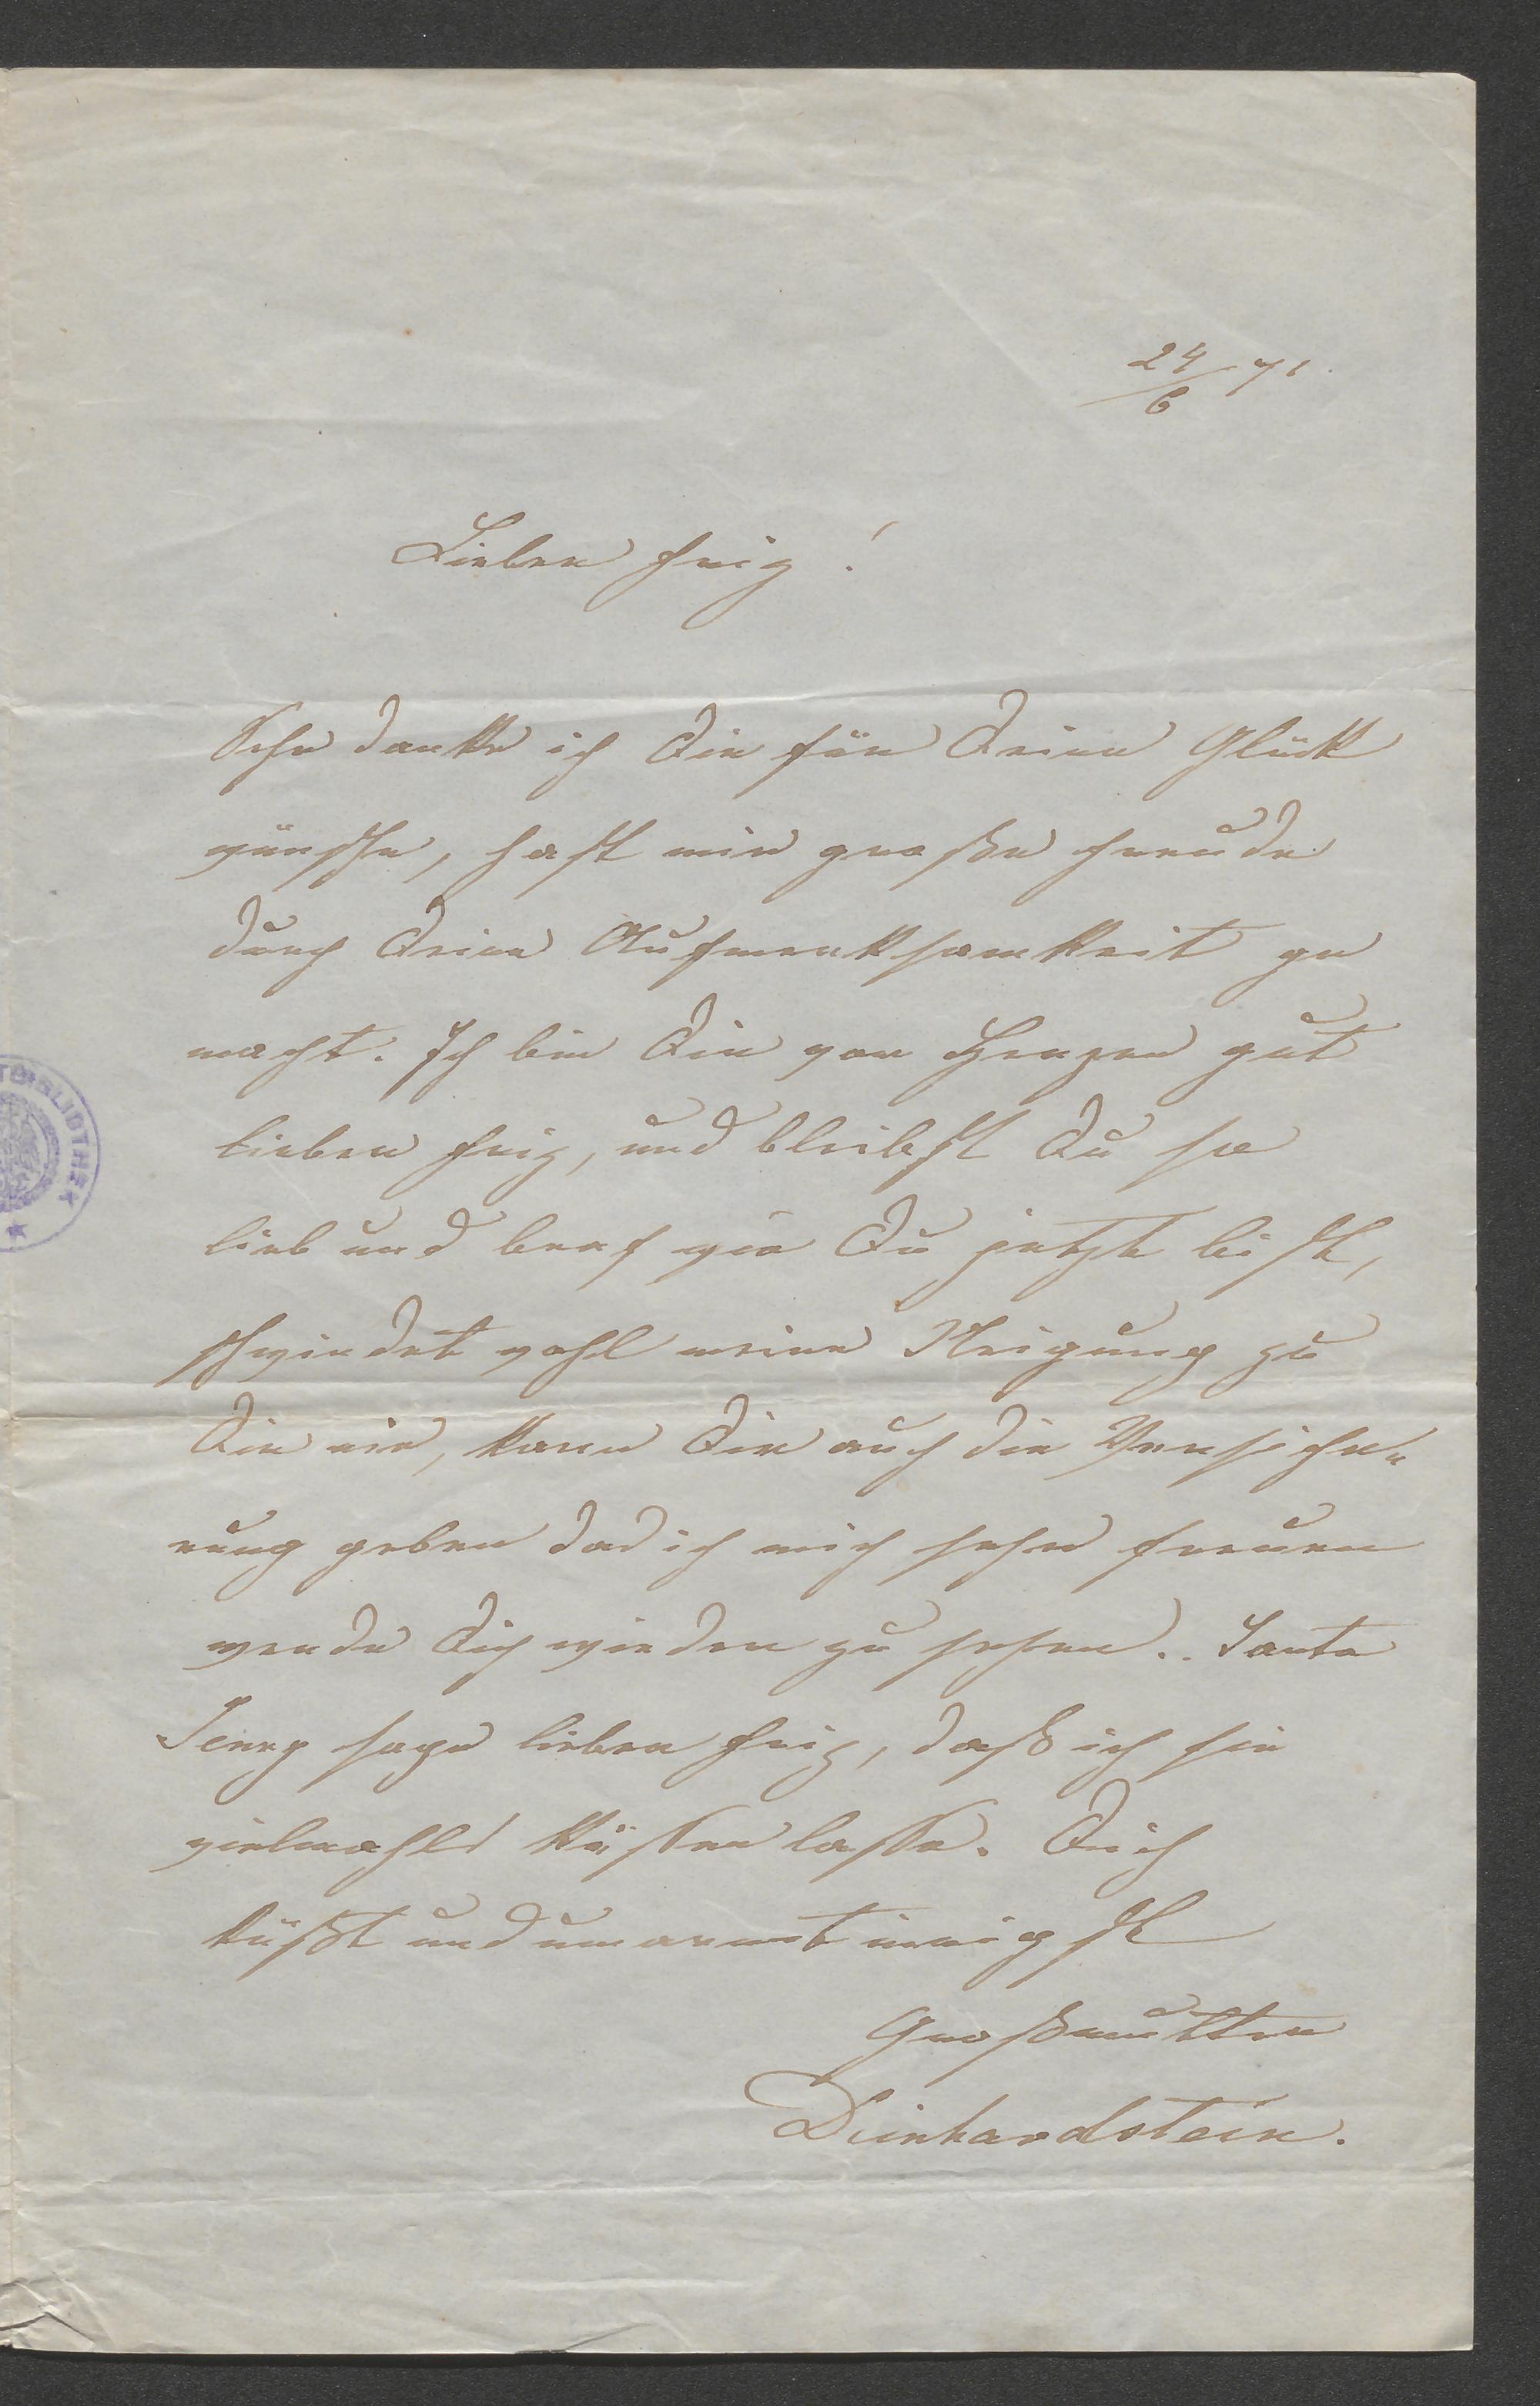 24/6 71.
Lieber Fritz!
Sehr danke ich Dir für Deine Glück
wünsche, hast mir große Freude
durch Deine Aufmerksamkeit ge
macht. Ich bin Dir von Herzen gut
lieber Fritz, und bleibst Du so
lieb und brav wie Du jetzt bist,
schwindet wohl meine Neigung zu
Dir nie, kann Dir auch die Versiche„
rung geben das ich mich sehr freuen
werde Dich wieder zu sehen. Tante
Jenny sage lieber Fritz, daß ich sie
vielmahls küssen lasse. Dich
küßt und umarmt innigst
Großmutter
Deinhardstein.